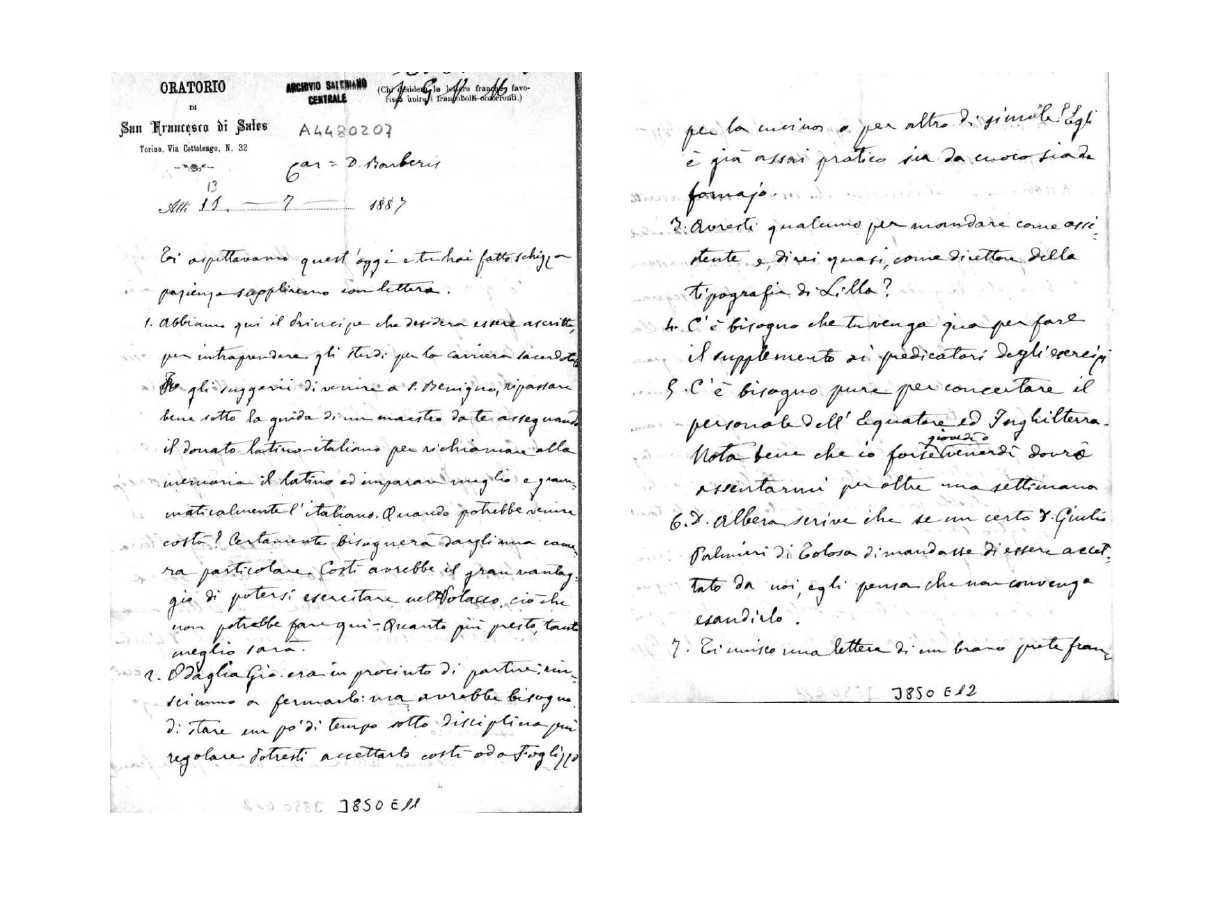 ORATORIO
DI
San Francesco di Sales
Torino, Via Cottolengo, N. 32
ARCHIVIO SALESIANO
CENTRALE
(Chi desidera le lettere franche favo-
risca unire i francobolli occorrenti.)
A4480207
Car = D. Barberis
13
Alli 11. — 7 1887
Ti aspettavamo quest'oggi e tu hai fatto schizza
pazienza suppliremo con lettera.
1. Abbiamo qui il Principe che desidera essere ascritto,
per intraprendere gli studi per la carriera sacerdotale
gli suggerii di venire a S. Benigno, ripassare
bene sotto la guida di un maestro da te assegnando
il donato latino-italiano per richiamare alla
memoria il latino ed imparare meglio e gram-
maticalmente l'italiano. Quando potrebbe venire
costà? Certamente bisognerà dargli una came-
ra particolare. Costì avrebbe il gran vantag-
gio di potersi esercitare nel Polacco, ciò che
non potrebbe fare qui - Quanto più presto, tanto
meglio sarà.
2. Odaglia Gio. era in procinto di partire; riu-
scimmo a fermarlo: ma avrebbe bisogno
di stare un po' di tempo sotto disciplina più
regolare. Potresti accettarlo costì od a Foglizzo
J850 E11
per la cucina o per altro di simile? Egli
è già assai pratico sia da cuoco sia da
fornajo.
3. Avresti qualcuno per mandare come assi-
stente e, direi quasi, come direttore della
tipografia di Lilla?
4. C'è bisogno che tu venga qua per fare
il supplemento ai predicatori degli esercizi
5. C'è bisogno pure per concertare il
personale dell'Equatore ed Inghilterra.
giovedì o
Nota bene che io forse venerdì dovrò
assentarmi per oltre una settimana
6. D. Albera scrive che se un certo D. Giulio
Palmieri di Tolosa dimandasse di essere accet-
tato da noi, egli pensa che non convenga
esaudirlo.
7. Ti unisco una lettera di un bravo prete fran-
J850 E12